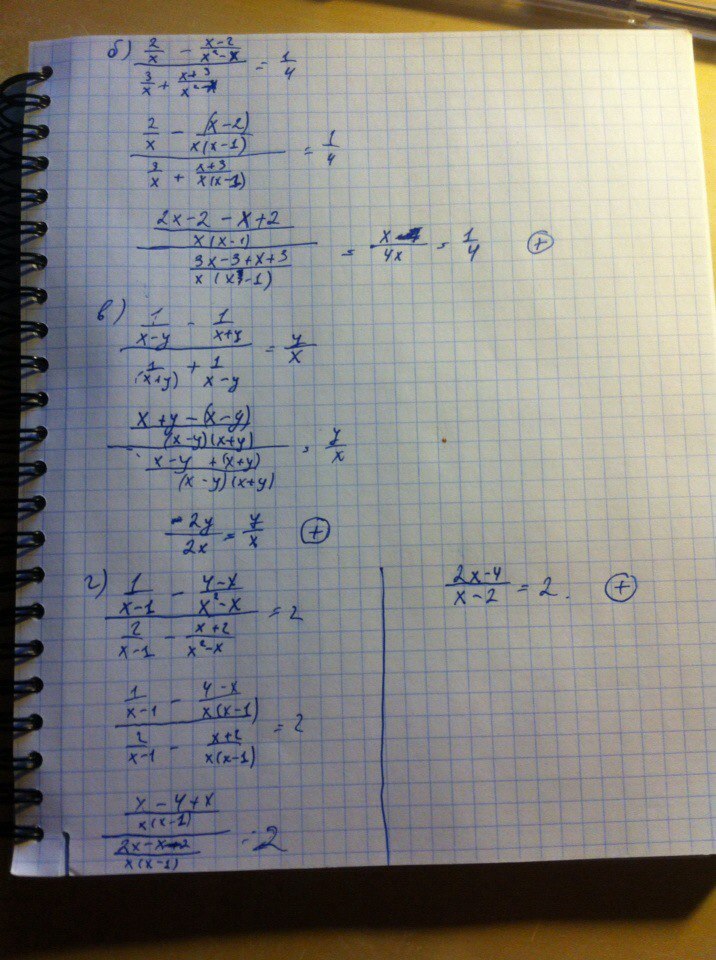 б) (2/x - (x-2)/(x²-x)) / (3/x + (x+3)/(x²-x)) = 1/4
(2/x - (x-2)/(x(x-1))) / (3/x + (x+3)/(x(x-1))) = 1/4
((2x-2-x+2)/(x(x-1))) / ((3x-3+x+3)/(x(x-1))) = x/4x = 1/4 ⊕
в) (1/(x-y) - 1/(x+y)) / (1/(x+y) + 1/(x-y)) = y/x
((x+y-(x-y))/((x-y)(x+y))) / ((x-y+(x+y))/((x-y)(x+y))) = y/x
2y/2x = y/x ⊕
г) (1/(x-1) - (4-x)/(x²-x)) / (2/(x-1) - (x+2)/(x²-x)) = 2
(1/(x-1) - (4-x)/(x(x-1))) / (2/(x-1) - (x+2)/(x(x-1))) = 2
((x-4+x)/(x(x-1))) / ((2x-x-2)/(x(x-1))) = 2
(2x-4)/(x-2) = 2. ⊕